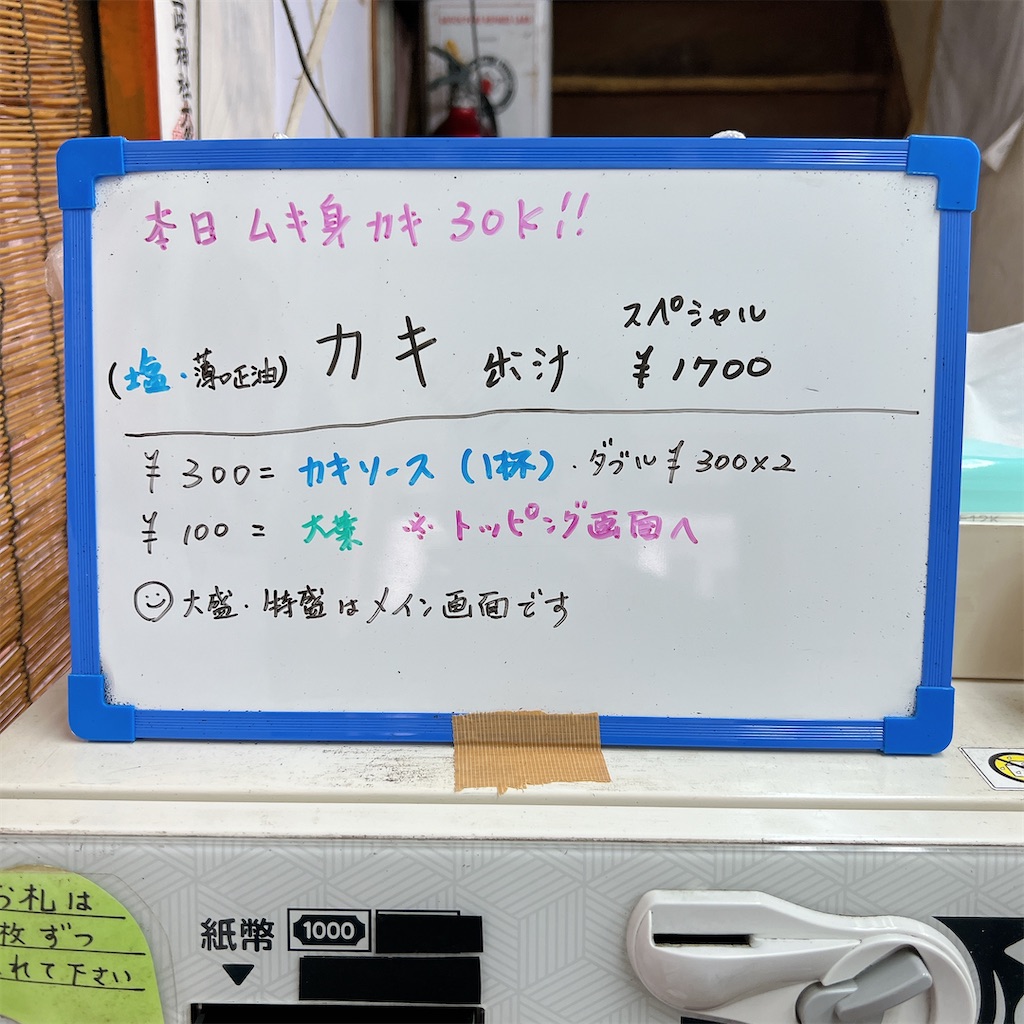 本日 ムキ身 カキ 30K!!
スペシャル
(塩・薄口正油) カキ 出汁 ¥1700
¥300= カキソース (1杯)・ダブル ¥300×2
¥100 = 大葉 ※トッピング画面へ
大盛・特盛はメイン画面です
お札は
枚ずつ
れて下さい
紙幣 1000